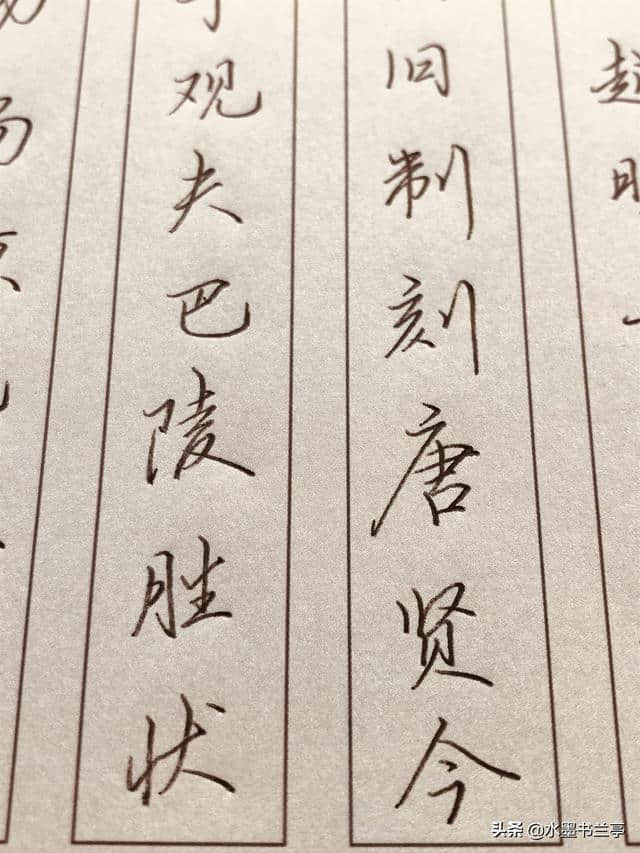 旧制刻唐贤今
予观夫巴陵胜状
头条@水墨书兰亭